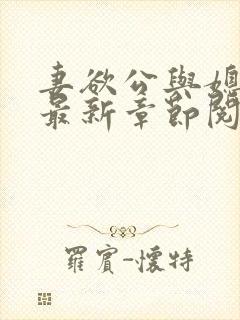 妻欲公與媳
最新章節閱
羅賓-懷特